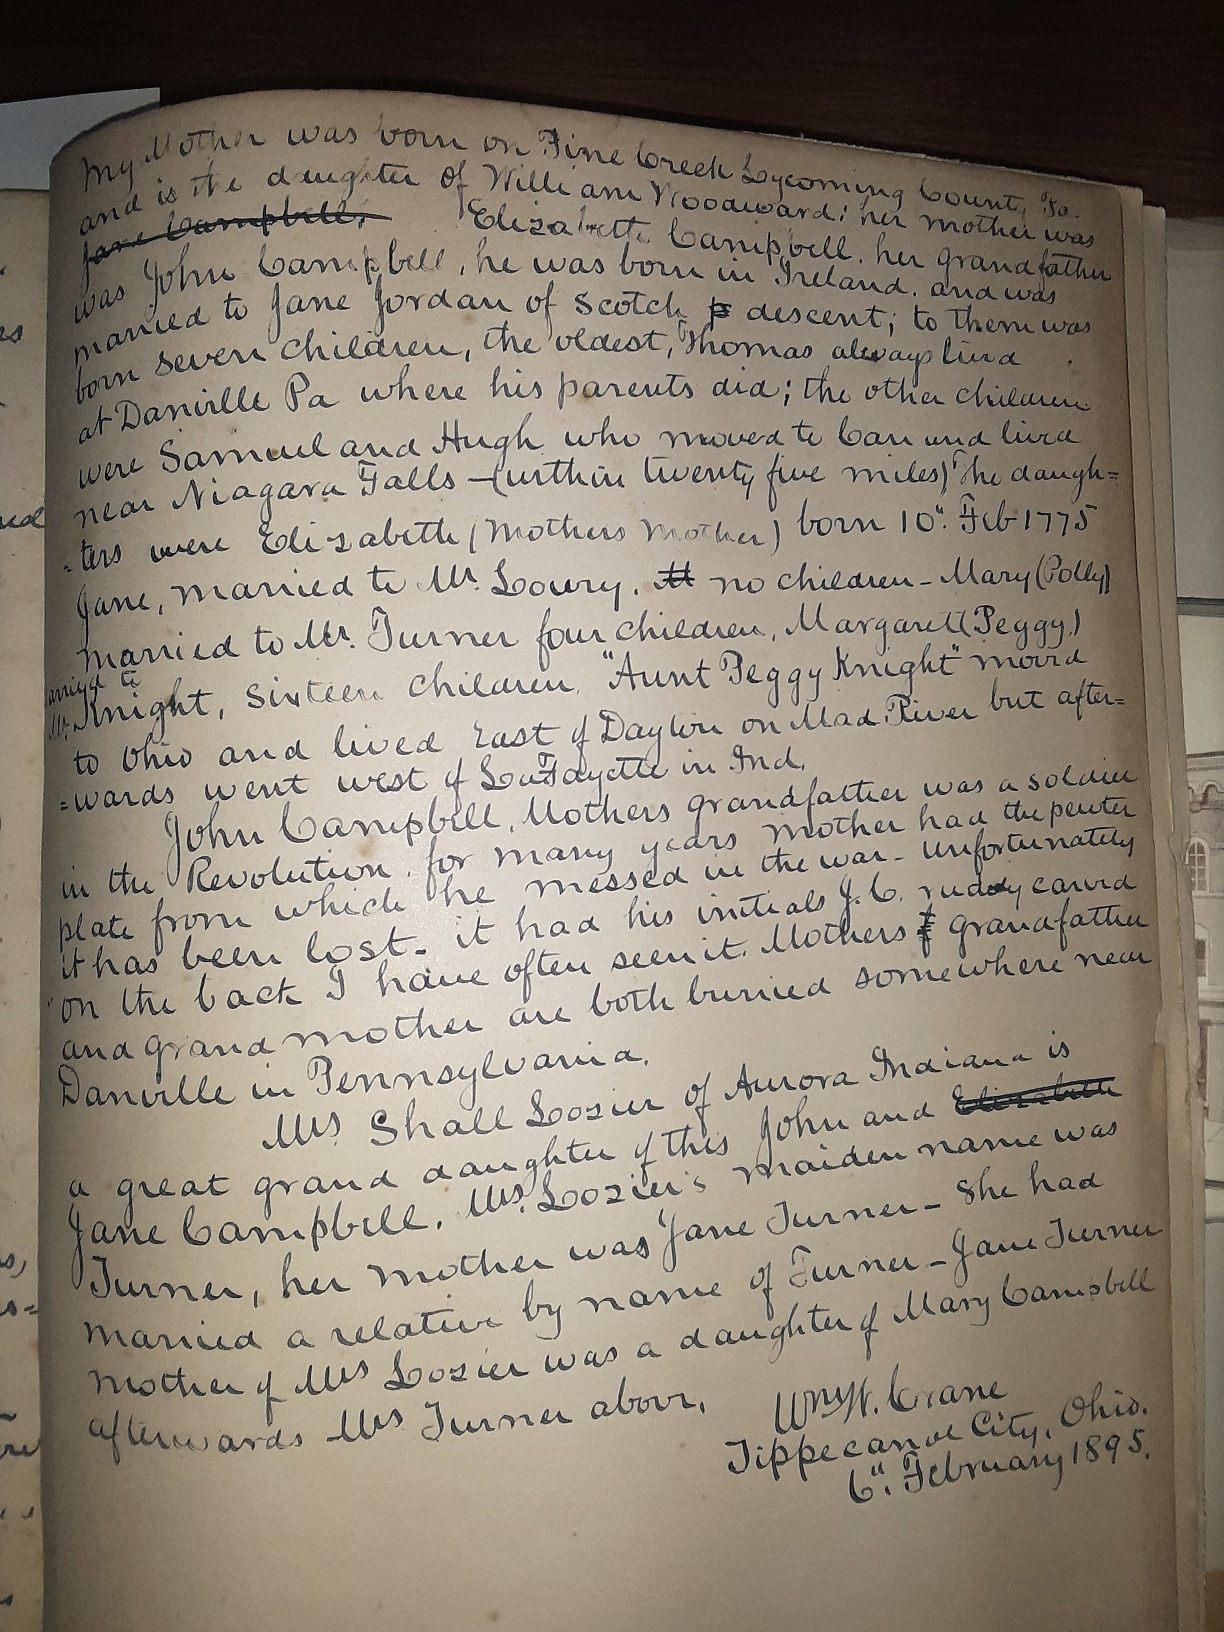 My Mother was born on Pine Creek Lycoming County Pa.
and is the daughter of William Woodward: her mother was
Jane Campbell, Elizabeth Campbell. her grandfather
was John Campbell, he was born in Ireland. and was
married to Jane Jordan of Scotch descent; to them was
born seven children, the oldest, Thomas always lived
at Danville Pa where his parents did; the other children
were Samuel and Hugh who moved to Can and lived
near Niagara Falls – (within twenty five miles) The daugh=
=ters were Elizabeth (Mothers Mother) born 10". Feb 1775
Jane, married to Mr. Lowry. no children – Mary (Polly)
married to Mr. Turner four children, Margarett (Peggy.)
married to
Mr. Knight, sixteen children. "Aunt Peggy Knight" moved
to Ohio and lived East of Dayton on Mad River but after=
=wards went west of LaFayette in Ind.
John Campbell, Mothers grandfather was a soldier
in the Revolution. for many years mother had the pewter
plate from which he messed in the war – unfortunately
it has been lost – it had his initials J. C. rudely carved
on the back I have often seen it. Mothers grandfather
and grand mother are both buried somewhere near
Danville in Pennsylvania.
Mrs Shall Lozier of Aurora Indiana is
a great grand daughter of this John and Elizabeth
Jane Campbell. Mrs. Lozier's maiden name was
Turner, her mother was Jane Turner – she had
married a relative by name of Turner – Jane Turner
mother of Mrs Lozier was a daughter of Mary Campbell
afterwards Mrs Turner above.
Wm W. Crane
Tippecanoe City, Ohio.
6". February 1895.